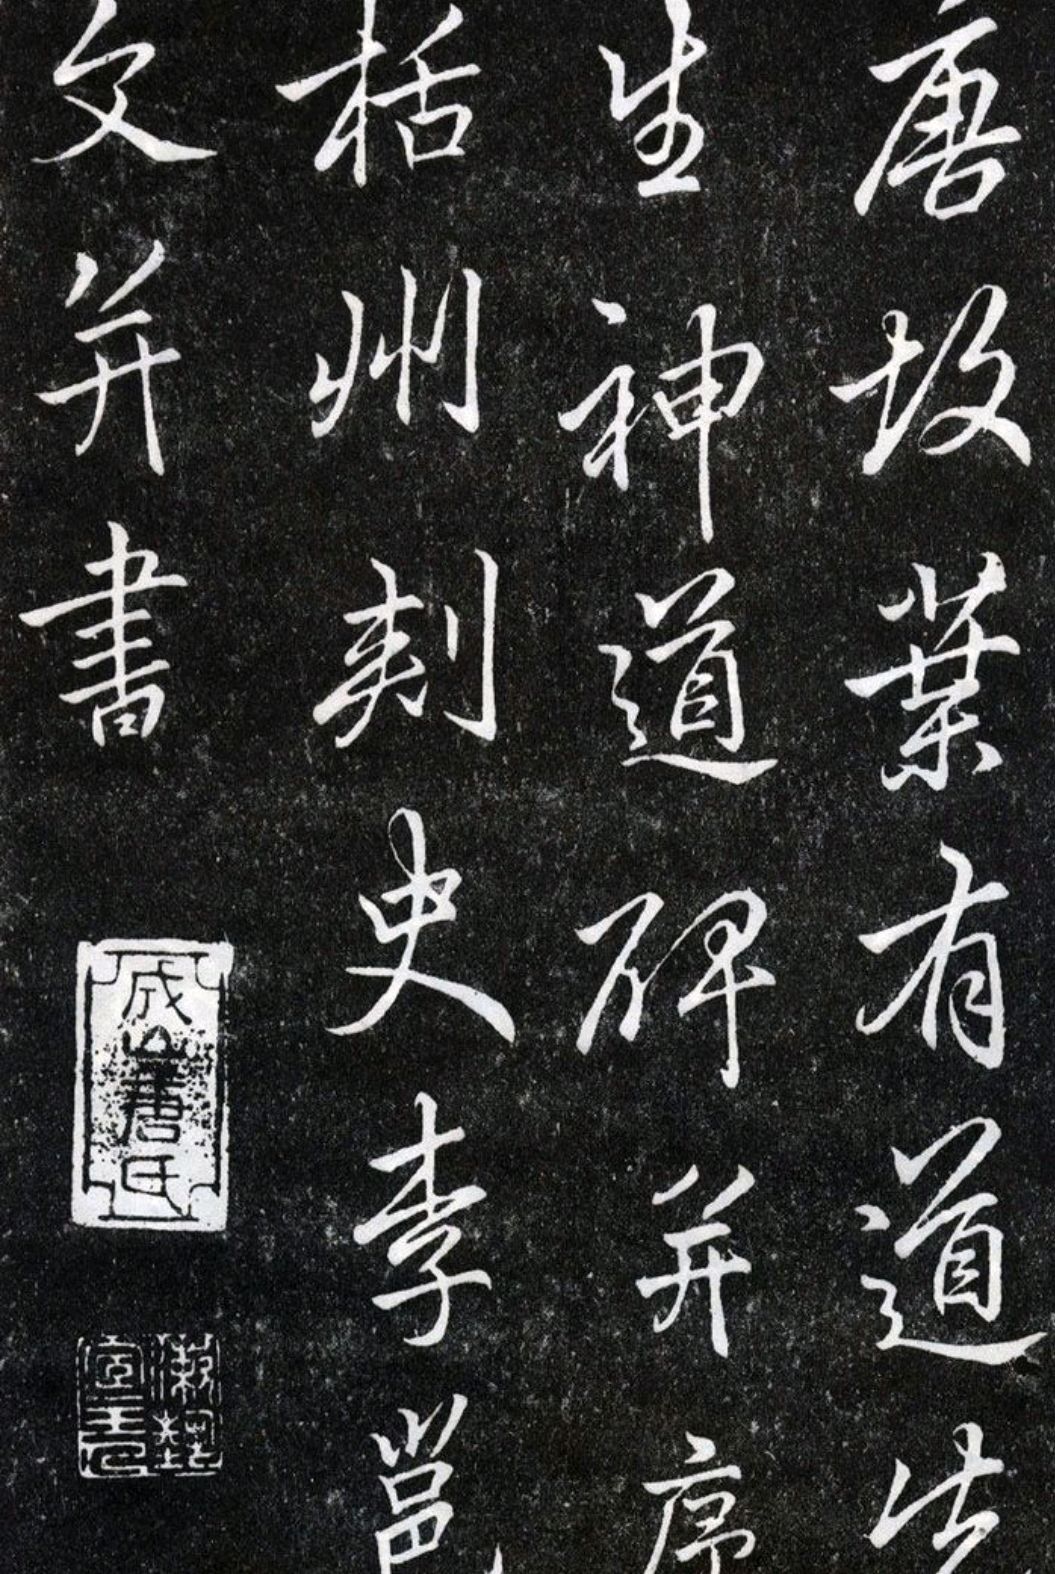 唐故葉有道先
生神道碑并序
括州刺史李邕
文并書
成山唐氏